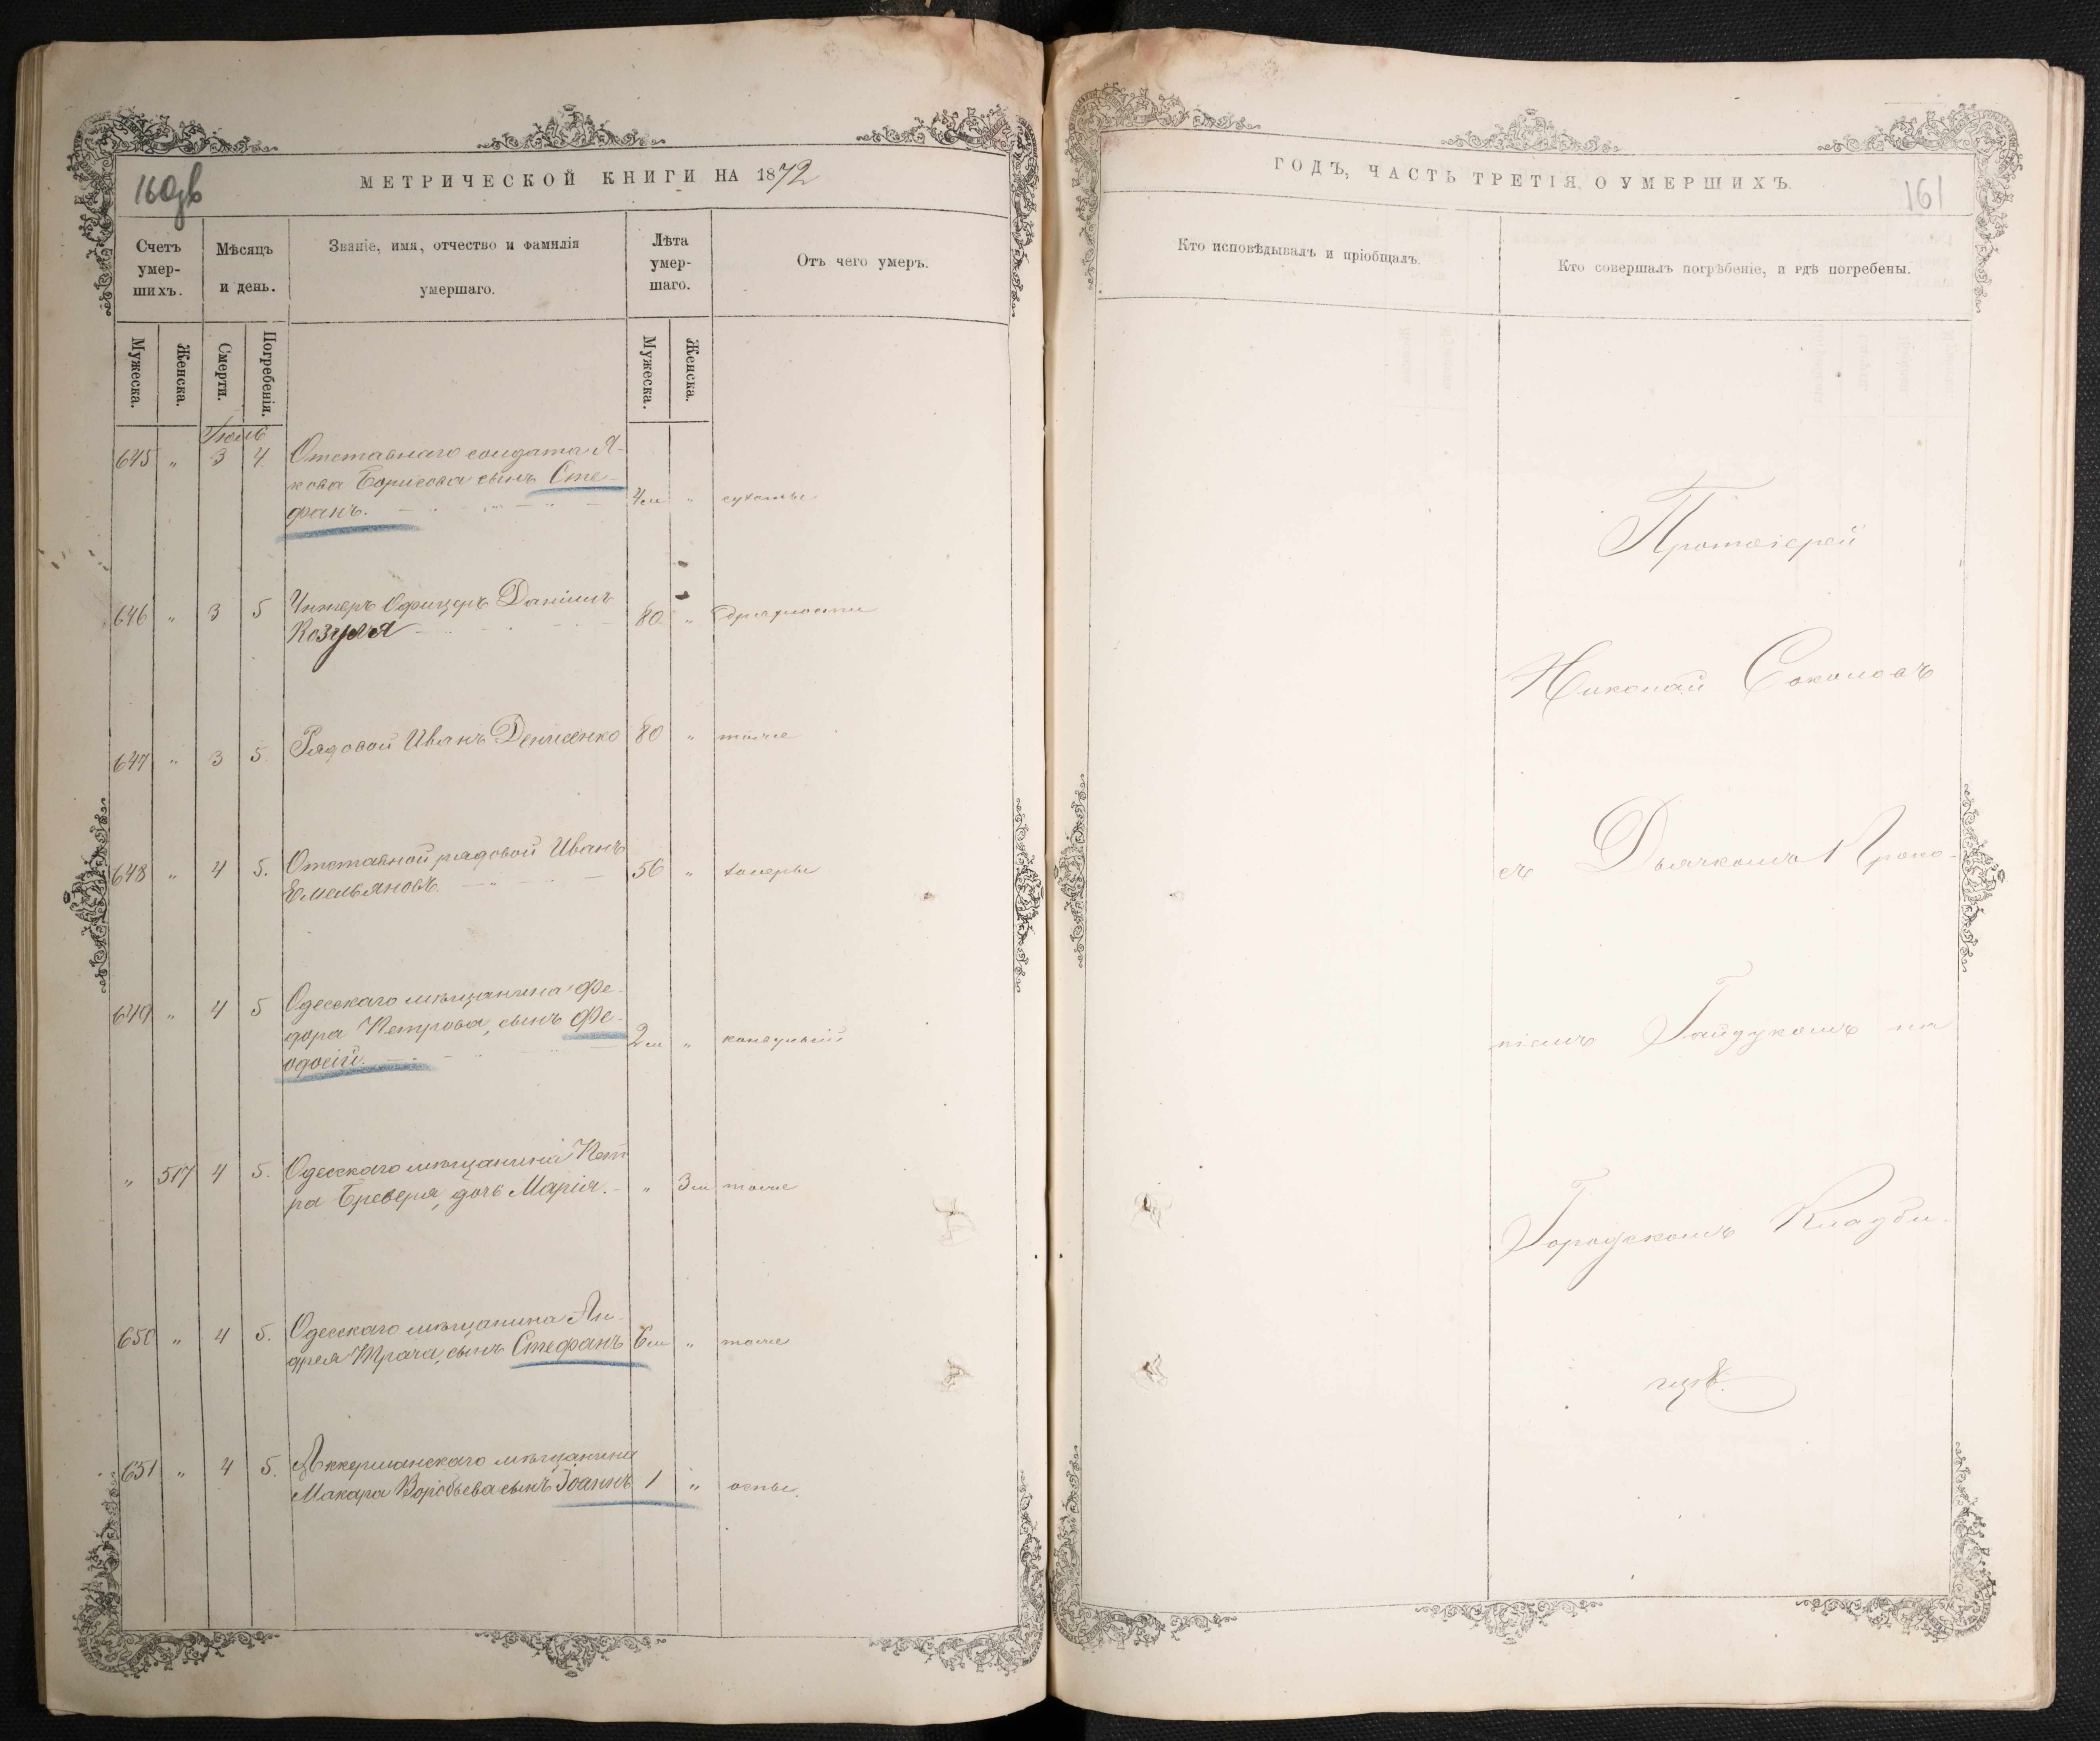 160дв
МЕТРИЧЕСКОЙ КНИГИ НА 1872
Счетъ умер-шихъ.
Мѣсяцъ и день.
Званіе, имя, отчество и фамилія умершаго.
Лѣта умер-шаго.
Отъ чего умеръ.
Мужеска. Женска. Смерти. Погребенія. Мужеска. Женска.
645 „ 3 4. Отставнаго солдата Я-
кова Борисова сынъ Сте-
фанъ. 4м „ сухоты
646 „ 3 5 Унтеръ Офицеръ Даніилъ
Козуля 80 „ дряхлости
647 „ 3 5. Рядовой Иванъ Денисенко 80 „ тоже
648 „ 4 5. Отставной рядовой Иванъ
Емельяновъ. 56 „ холеры
649 „ 4 5 Одесскаго мѣщанина Фе-
дора Петрова, сынъ Фе-
одосій. 2м „ конвульсій
„ 517 4 5. Одесскаго мѣщанина Пет
ра Бревера, дочь Марія. „ 3м тоже
650 „ 4 5. Одесскаго мѣщанина Ан-
дрея Трача, сынъ Стефанъ 6м „ тоже
651 „ 4 5. Аккерманскаго мѣщанина
Макара Воробьева сынъ Іоаннъ 1 „ оспы.
ГОДЪ, ЧАСТЬ ТРЕТІЯ, О УМЕРШИХЪ.
161
Кто исповѣдывалъ и пріобщалъ.
Кто совершалъ погрѣбеніе, и гдѣ погребены.
Протоіерей
Николай Соколовъ
съ Дьячкомъ Проко-
піемъ Гайдукомъ на
Городскомъ Кладби-
щѣ.